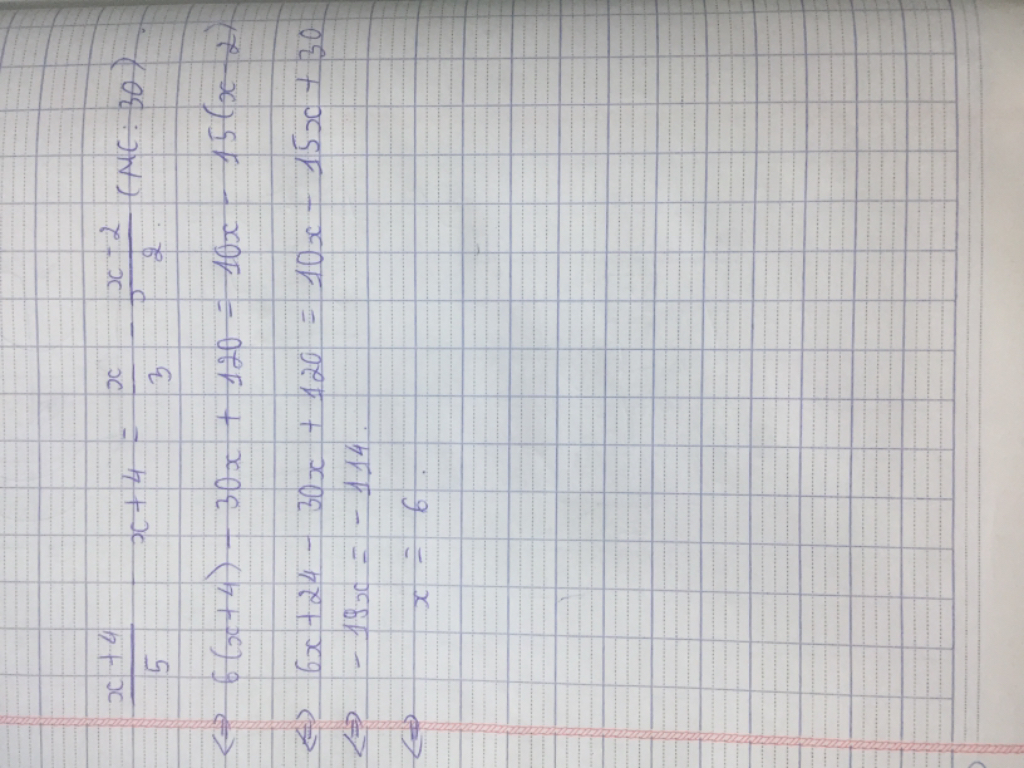 \frac{x+4}{5} - x + 4 = \frac{x}{3} - \frac{x-2}{2} (MC: 30).
⇔ 6(x+4) - 30x + 120 = 10x - 15(x-2)
⇔ 6x+24 - 30x + 120 = 10x - 15x + 30
⇔ -19x = -114.
⇔ x = 6.